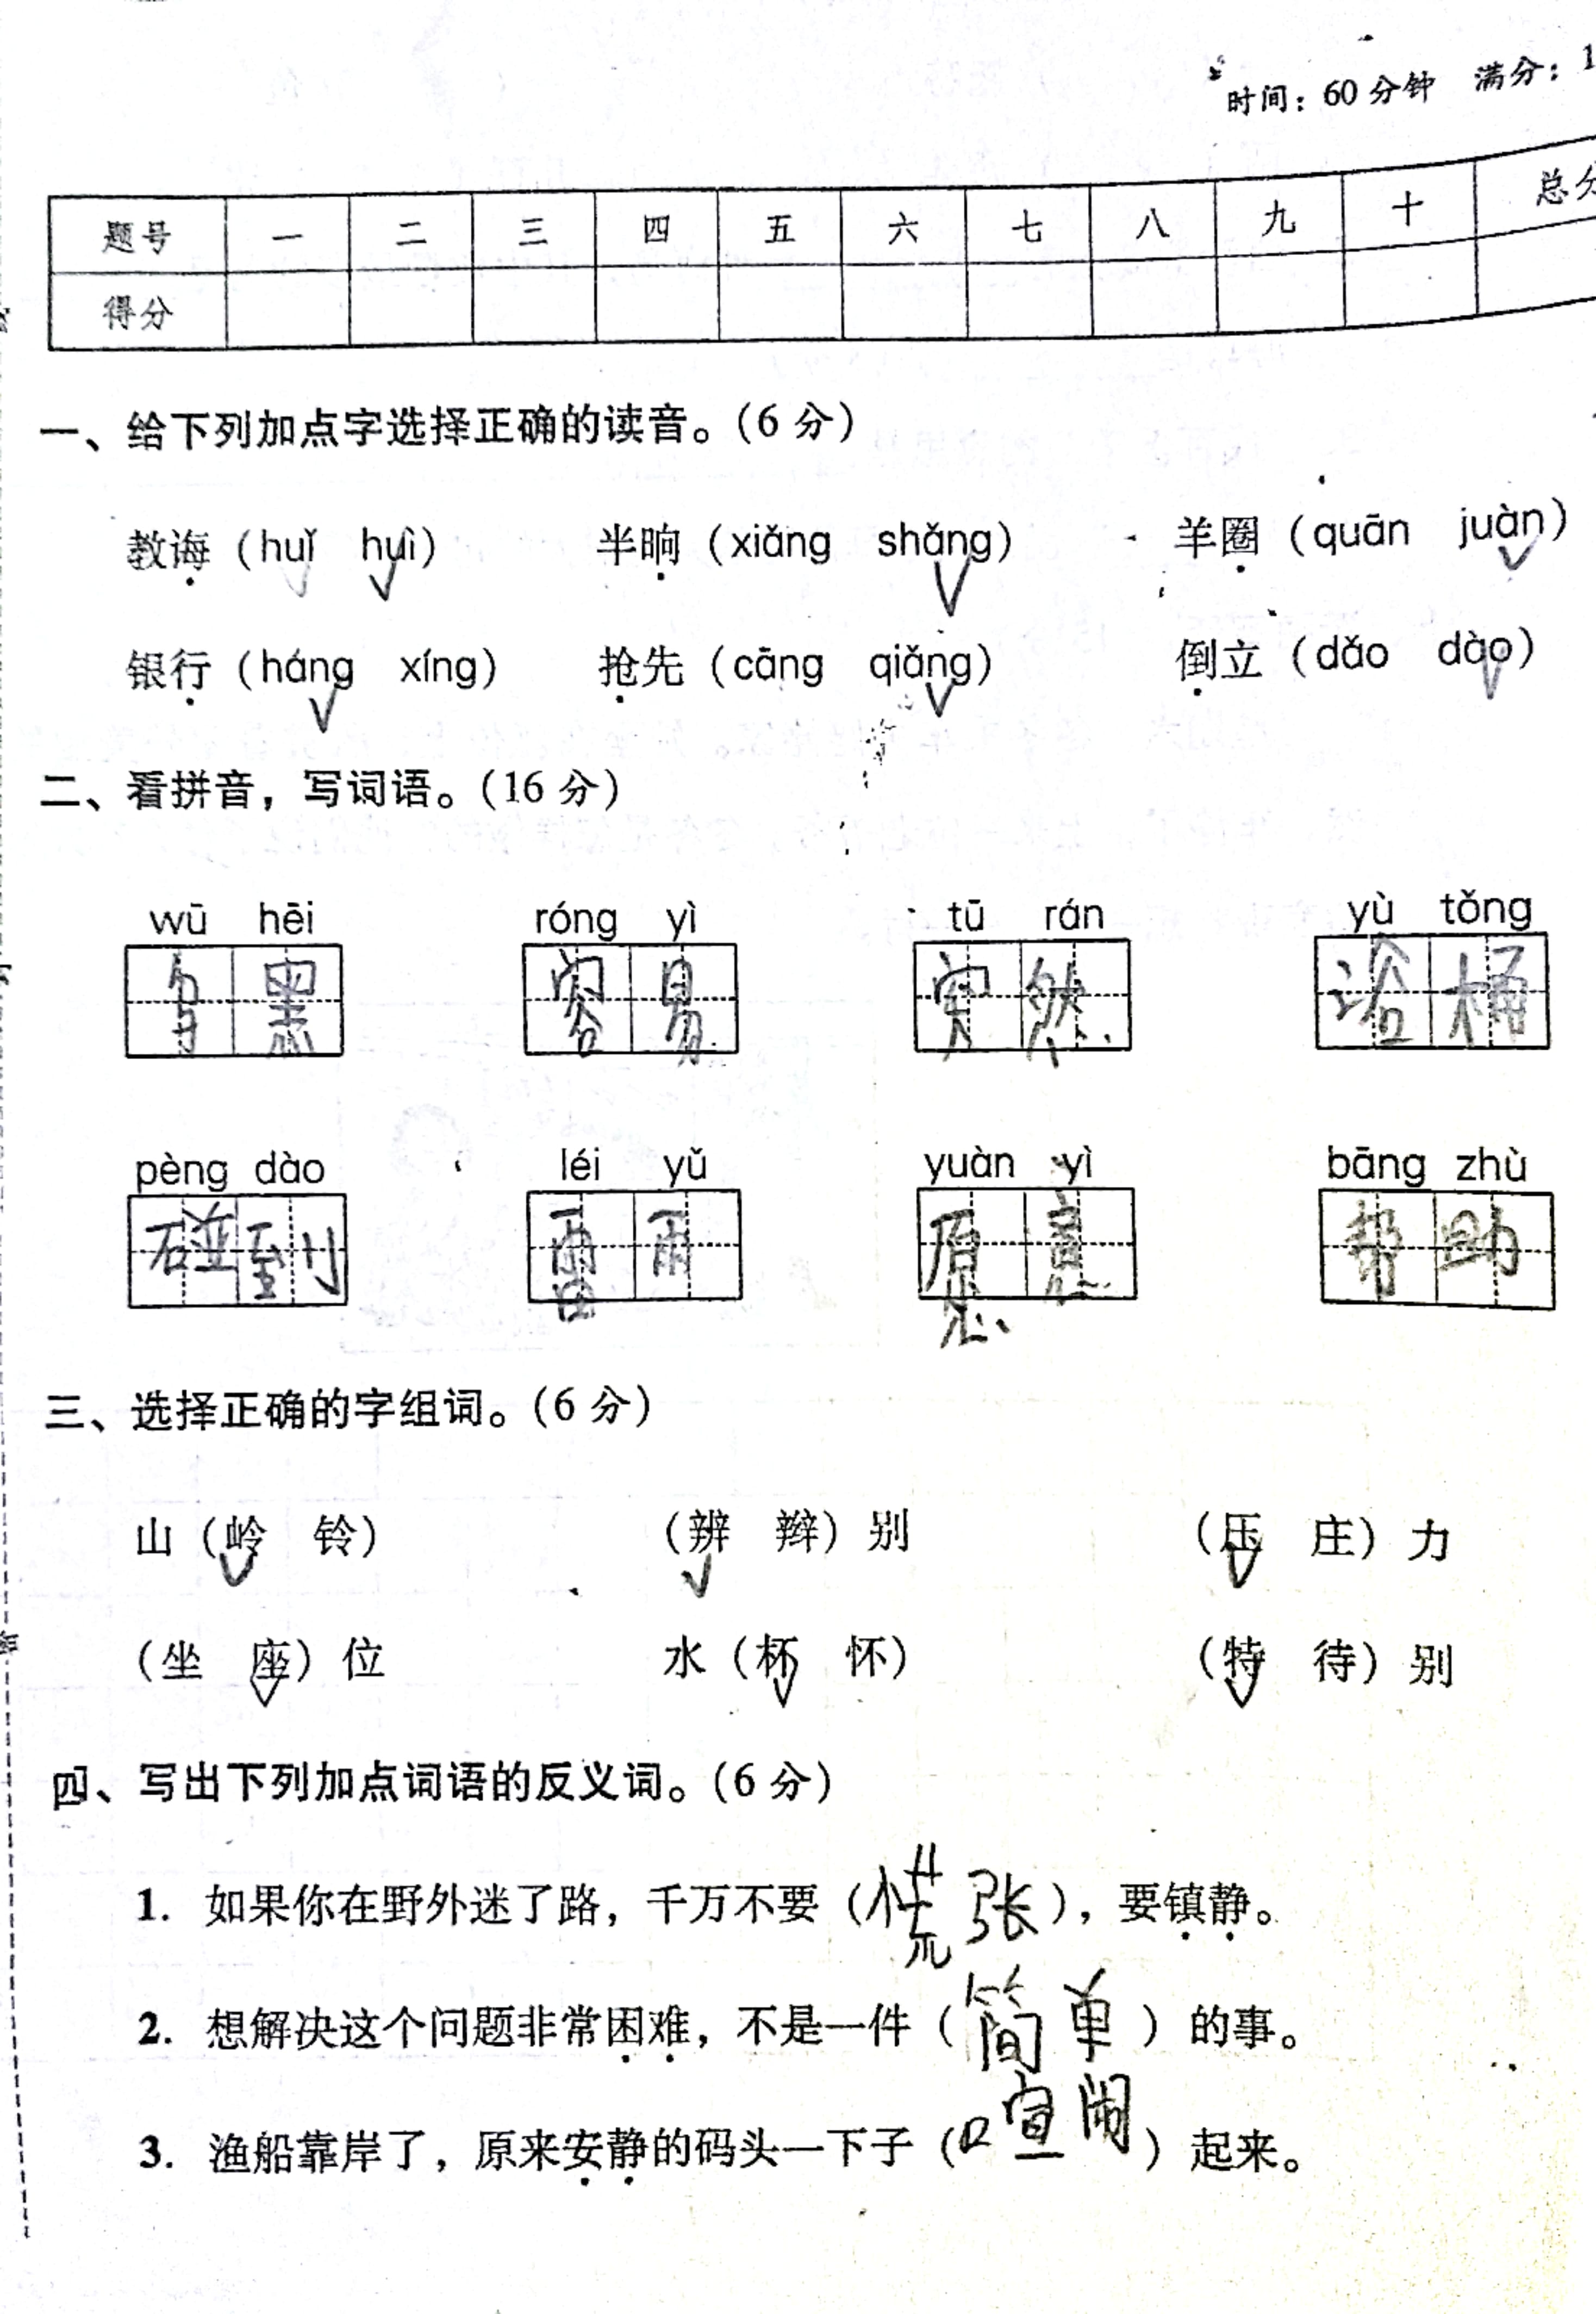 时间：60 分钟 满分：1
题号 一 二 三 四 五 六 七 八 九 十 总分
得分
一、给下列加点字选择正确的读音。（6 分）
教诲（huǐ huì） 半晌（xiǎng shǎng） 羊圈（quān juàn）
银行（háng xíng） 抢先（cāng qiǎng） 倒立（dǎo dào）
二、看拼音，写词语。（16 分）
wū hēi róng yì tū rán yù tǒng
乌黑 容易 突然 浴桶
pèng dào léi yǔ yuàn yì bāng zhù
碰到 雷雨 愿意 帮助
三、选择正确的字组词。（6 分）
山（岭 铃） （辨 辩）别 （压 庄）力
（坐 座）位 水（杯 怀） （特 待）别
四、写出下列加点词语的反义词。（6 分）
1. 如果你在野外迷了路，千万不要（慌张），要镇静。
2. 想解决这个问题非常困难，不是一件（简单）的事。
3. 渔船靠岸了，原来安静的码头一下子（喧闹）起来。